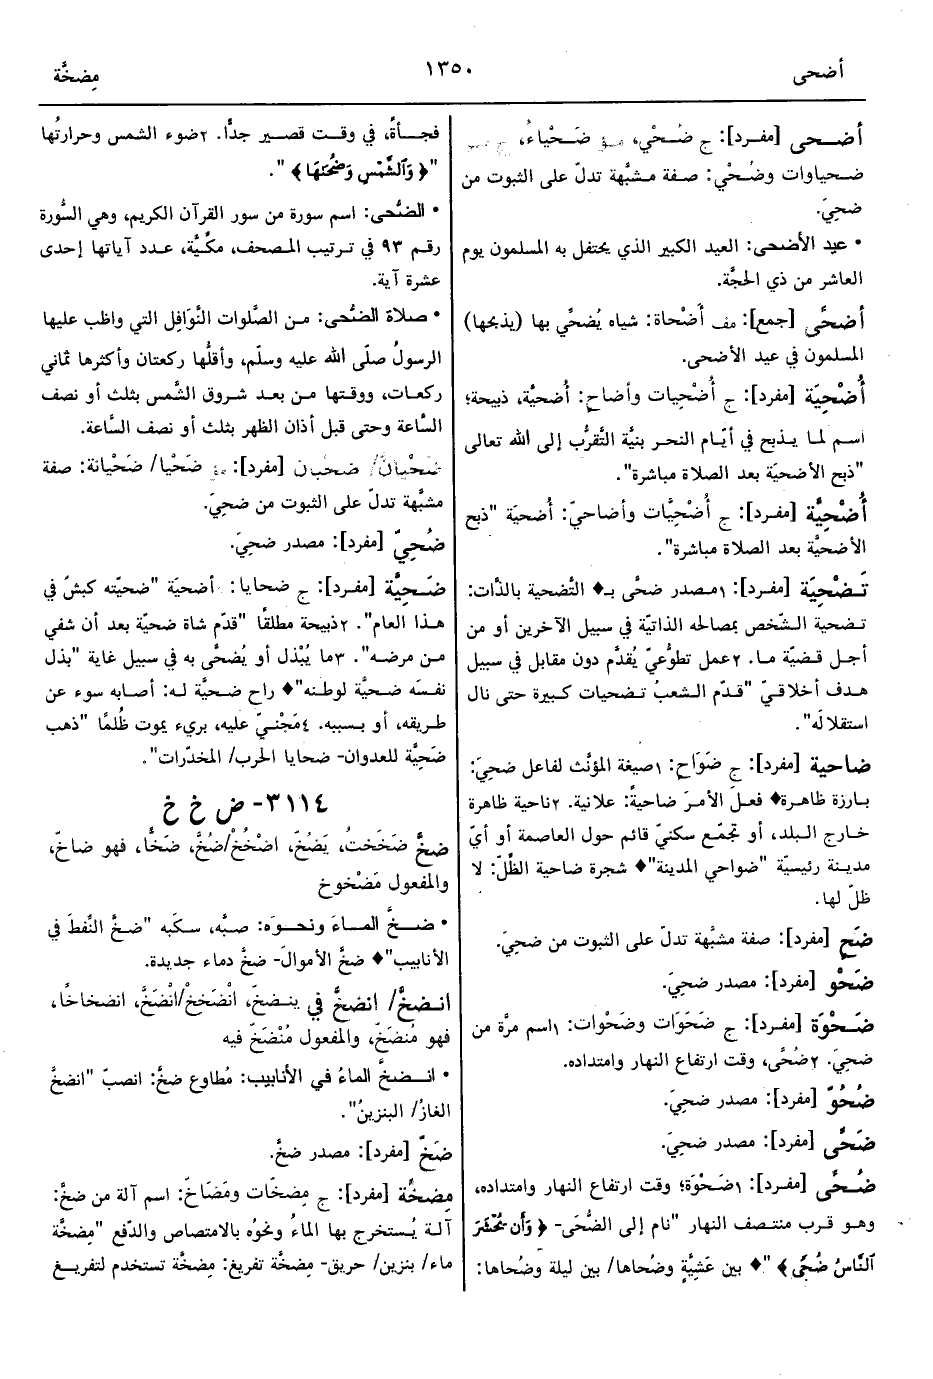 أضحى
١٣٥٠
مِضخَّة
أضـحى [مفـرد]: ج ضُـحْي، مـؤ ضَـحْياءُ، ج مؤ
ضـحياوات وضُـحْي: صـفة مـشبَّهة تدلّ على الثبوت من
ضحِيَ.
• عيد الأضحى: العيد الكبير الذي يحتفل به المسلمون يوم
العاشر من ذي الحجَّة.
أضحًى [جمع]: مف أَضْحاة: شياه يُضحَّي بها (يذبحها)
المسلمون في عيد الأضحى.
أُضْحِيَة [مفرد]: ج أُضْحِيات وأضاحٍ: أُضحيَّة، ذبيحة؛
اسـم لمـا يـذبح في أيّـام النحـر بنيَّة التَّقرُّب إلى الله تعالى
"ذبح الأضحيَة بعد الصلاة مباشرة".
أُضْحِيَّة [مفـرد]: ج أُضْحِيَّات وأضاحيّ: أُضحيَة "ذبح
الأضحيَّة بعد الصلاة مباشرة".
تَـضْحِيَة [مفرد]: ١مـصدر ضحَّى بـ♦ التَّضحية بالذَّات:
تـضحية الـشَّخص بمصالحه الذاتيّة في سبيل الآخرين أو من
أجـل قـضيَّة مـا. ٢عمل تطوُّعيّ يُقدَّم دون مقابل في سبيل
هـدف أخـلاقـيّ "قـدّم الـشعبُ تـضحيات كـبيرة حتى نال
استقلالَه".
ضاحية [مفرد]: ج ضَوَاحٍ: ١صيغة المؤنَّث لفاعل ضحِيَ:
بـارزة ظاهـرة♦ فعـلَ الأمـرَ ضـاحيةً: علانية. ٢ناحية ظاهرة
خارج الـبلد، أو تجمّـع سكنيّ قائم حول العاصمة أو أيّ
مديـنة رئيسيّة "ضواحي المدينة"♦ شجرة ضاحية الظِّلّ: لا
ظلّ لها.
ضَحٍ [مفرد]: صفة مشبَّهة تدلّ على الثبوت من ضحِيَ.
ضَحْو [مفرد]: مصدر ضحِيَ.
ضَـحْوَة [مفـرد]: ج ضَحَوات وضَحْوات: ١اسم مرَّة من
ضحِيَ. ٢ضُحًى، وقت ارتفاع النهار وامتداده.
ضُحُوّ [مفرد]: مصدر ضحِيَ.
ضَحًى [مفرد]: مصدر ضحِيَ.
ضُـحًى [مفـرد]: ١ضَـحْوَة؛ وقت ارتفاع النهار وامتداده،
وهـو قرب منتـصف النهار "نام إلى الضُّحَى- ﴿وَأَن يُحْشَرَ
النَّاسُ ضُحًى﴾"♦ بين عَشيَّةٍ وضُحاها/ بين ليلة وضُحاها:
فجــأةً، في وقـت قصـير جـدًّا. ٢ضوء الشمس وحرارتُها
"﴿وَالشَّمْسِ وَضُحَىٰهَا﴾".
• الضُّحى: اسم سورة من سور القرآن الكريم، وهي السُّورة
رقـم ٩٣ في تـرتيب المـصحف، مكِّـيَّة، عـدد آياتها إحدى
عشرة آية.
• صلاة الضُّحى: مـن الصَّلوات النَّوَافِل التي واظب عليها
الرسولُ صلّى الله عليه وسلّم، وأقلُّها ركعتان وأكثرها ثماني
ركعـات، ووقـتها مـن بعـد شروق الشَّمس بثلث أو نصف
السَّاعة وحتى قبل أذان الظهر بثلث أو نصف السَّاعة.
ضَحْيانُ/ ضحيان [مفرد]: مؤ ضَحْيا/ ضَحْيانة: صفة
مشبَّهة تدلّ على الثبوت من ضحِيَ.
ضُحِيّ [مفرد]: مصدر ضحِيَ.
ضَـحِيَّة [مفـرد]: ج ضحايا: أضحيَة "ضحيّته كبشٌ في
هـذا العام". ٢ذبيحة مطلقًا "قدّم شاة ضحيّة بعد أن شفي
مـن مرضـه". ٣ما يُبْذل أو يُضحَّى به في سبيل غاية "بذل
نفـسَه ضـحيَّة لوطـنه"♦ راح ضـحيَّة لـه: أصابه سوء عن
طـريقه، أو بـسببه. ٤مَجْنـيّ علـيه، بريء يموت ظُلمًا "ذهب
ضَحِيَّة للعدوان- ضحايا الحرب/ المخدّرات".
٣١١٤- ض خ خ
ضخَّ ضَخَختُ، يَضُخّ، اضْخُخْ/ضُخَّ، ضَخًّا، فهو ضاخّ،
والمفعول مَضْخوخ
• ضـخَّ المـاءَ ونحـوَه: صبَّه، سكَبه "ضخَّ النَّفطَ في
الأنابيب"♦ ضخَّ الأموالَ- ضخَّ دماء جديدة.
انـضخَّ/ انضخَّ في ينـضخّ، انْضَخِخْ/انْضَخَّ، انضخاخًا،
فهو مُنضَخّ، والمفعول مُنْضَخّ فيه
• انـضخَّ الماءُ في الأنابيب: مُطاوع ضخَّ: انصبّ "انضخَّ
الغازُ/ البنزينُ".
ضَخّ [مفرد]: مصدر ضخَّ.
مِضخَّة [مفرد]: ج مِضخَّات ومَضَاخّ: اسم آلة من ضخَّ:
آلـة يُـستخرج بهـا المـاءُ ونحوُه بالامتصاص والدَّفع "مِضخَّة
ماء/ بنزين/ حريق- مِضخَّة تفريغ: مِضخَّة تستخدم لتفريـغ